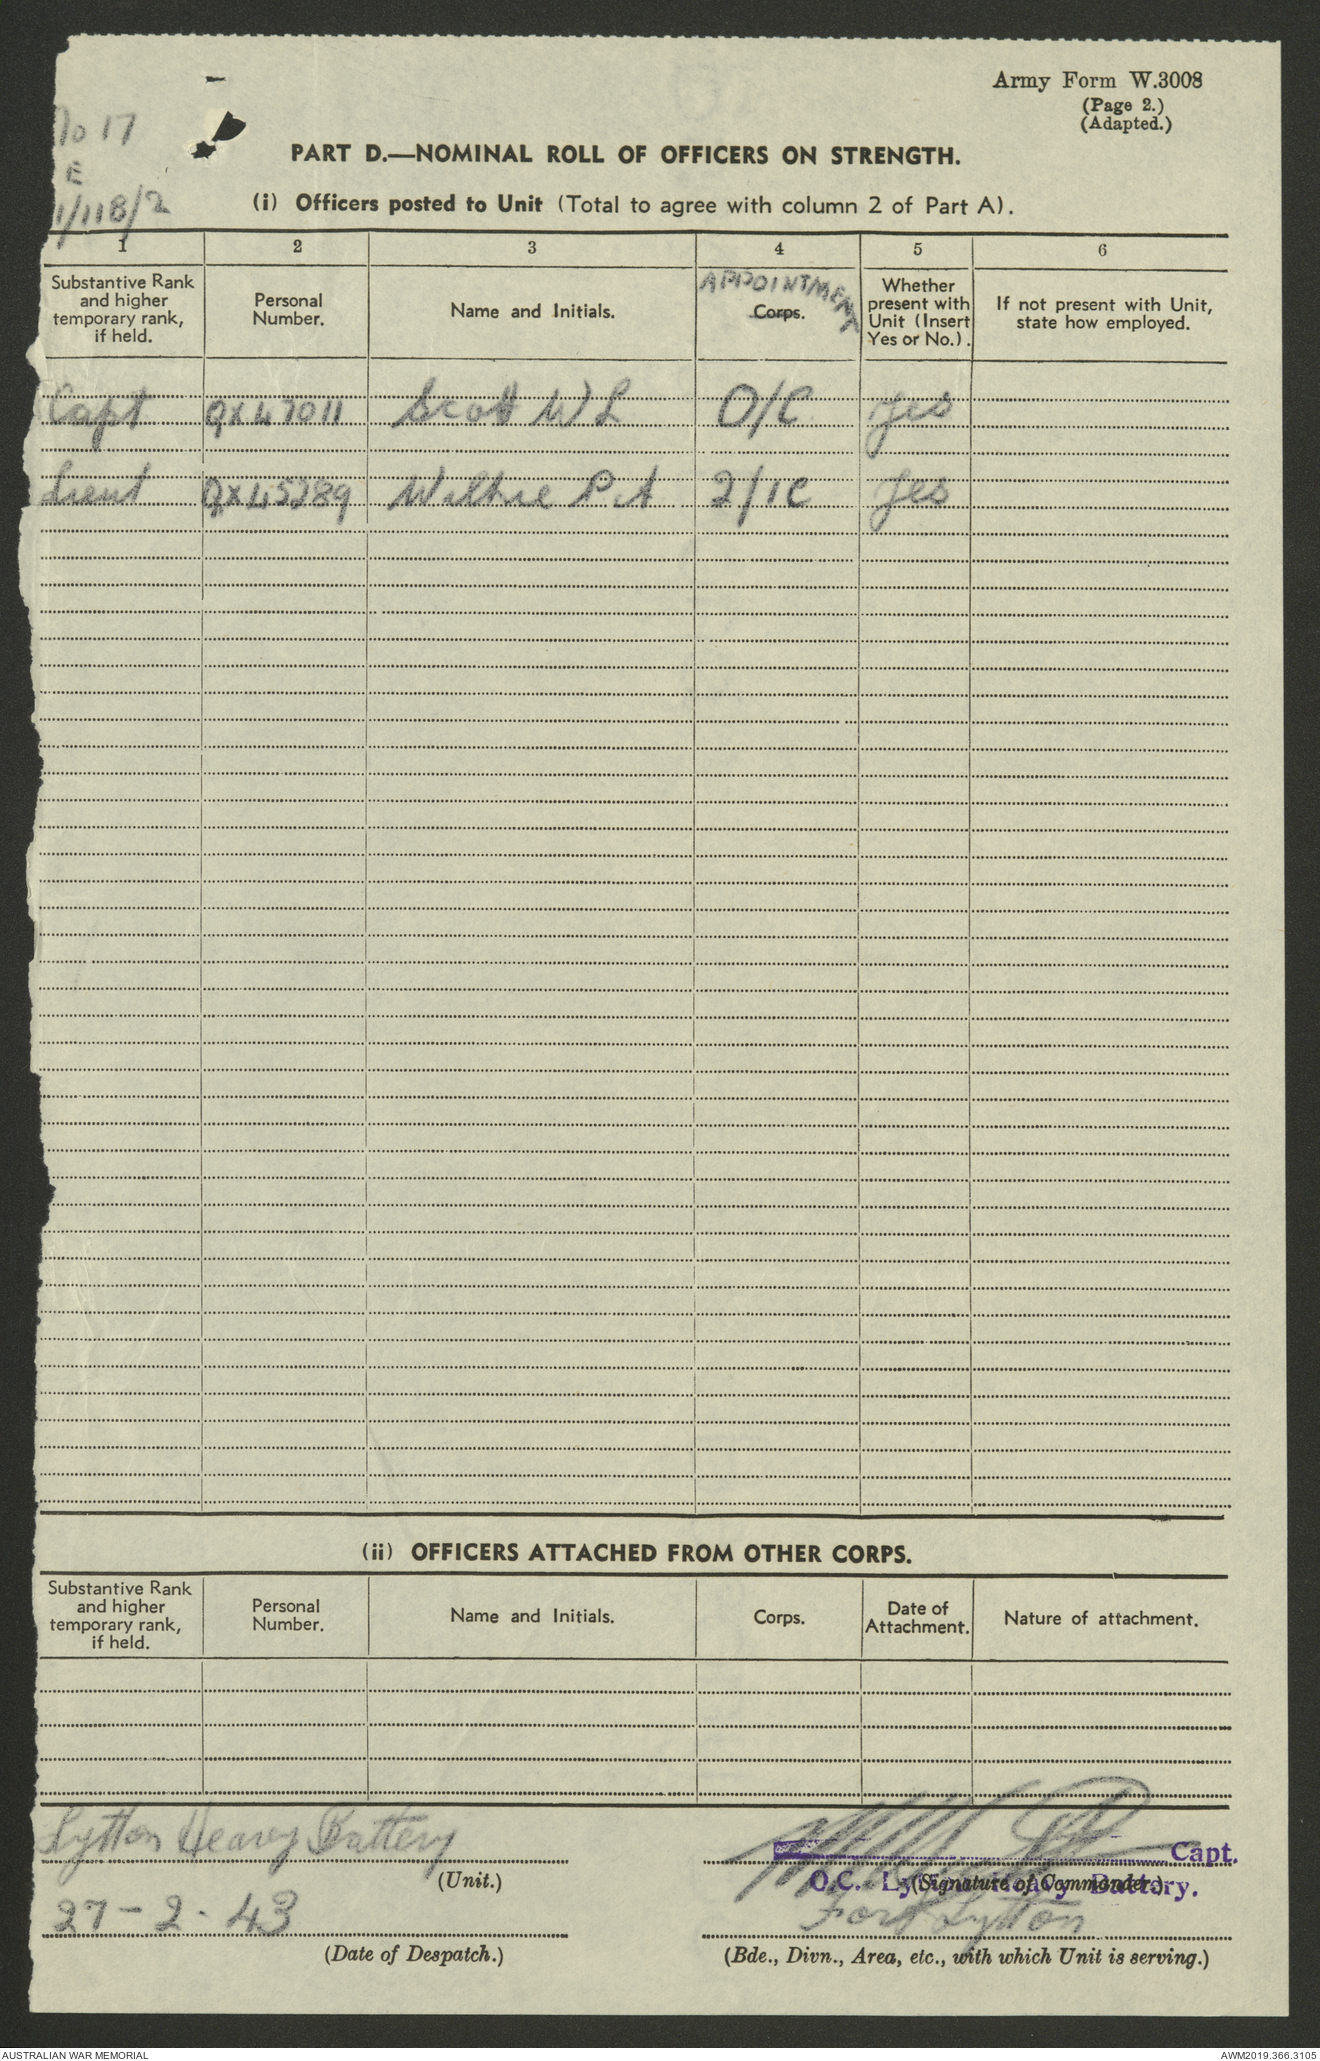 Army Form W.3008
(Page 2.)
(Adapted.)
No 17
E
1/118/2
PART D.—NOMINAL ROLL OF OFFICERS ON STRENGTH.
(i) Officers posted to Unit (Total to agree with column 2 of Part A).
1 2 3 4 5 6
Substantive Rank and higher temporary rank, if held.
Personal Number.
Name and Initials.
APPOINTMENT
Corps.
Whether present with Unit (Insert Yes or No.).
If not present with Unit, state how employed.
Capt QX47011 Scott W L O/C yes
Lieut QX45289 P A 2/1C Yes
(ii) OFFICERS ATTACHED FROM OTHER CORPS.
Substantive Rank and higher temporary rank, if held.
Personal Number.
Name and Initials.
Corps.
Date of Attachment.
Nature of attachment.
Lytton Heavy Battery
(Unit.)
27-2-43
(Date of Despatch.)
Capt.
O.C. Lytton Heavy Battery.
(Signature of Commander.)
Fort Lytton
(Bde., Divn., Area, etc., with which Unit is serving.)
AUSTRALIAN WAR MEMORIAL
AWM2019.366.3105